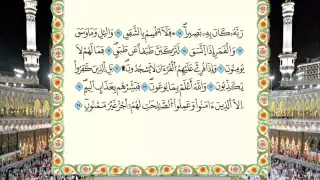 رَبَّهُۥ كَانَ بِهِۦ بَصِيرًا ۝ فَلَآ أُقْسِمُ بِٱلشَّفَقِ ۝ وَٱلَّيْلِ وَمَا وَسَقَ
۝ وَٱلْقَمَرِ إِذَا ٱتَّسَقَ ۝ لَتَرْكَبُنَّ طَبَقًا عَن طَبَقٍ ۝ فَمَا لَهُمْ لَا
يُؤْمِنُونَ ۝ وَإِذَا قُرِئَ عَلَيْهِمُ ٱلْقُرْءَانُ لَا يَسْجُدُونَ ۝ بَلِ ٱلَّذِينَ كَفَرُوا۟
يُكَذِّبُونَ ۝ وَٱللَّهُ أَعْلَمُ بِمَا يُوعُونَ ۝ فَبَشِّرْهُم بِعَذَابٍ أَلِيمٍ
۝ إِلَّا ٱلَّذِينَ ءَامَنُوا۟ وَعَمِلُوا۟ ٱلصَّٰلِحَٰتِ لَهُمْ أَجْرٌ غَيْرُ مَمْنُونٍۭ ۝